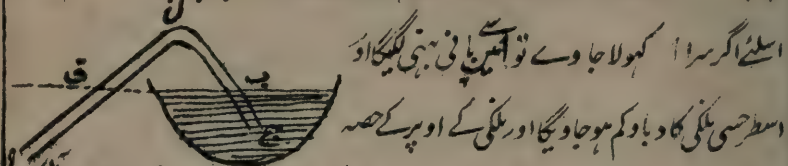 اسلئے اگر سرا ا کھولا جاوے تو اسمیں سے پانی بہنی لگیگا اور
اسطرحسی ہلکی کا دباو کم ہو جاویگا اور ہلکی کے اوپر کے حصہ
ل
ق
ب
ج